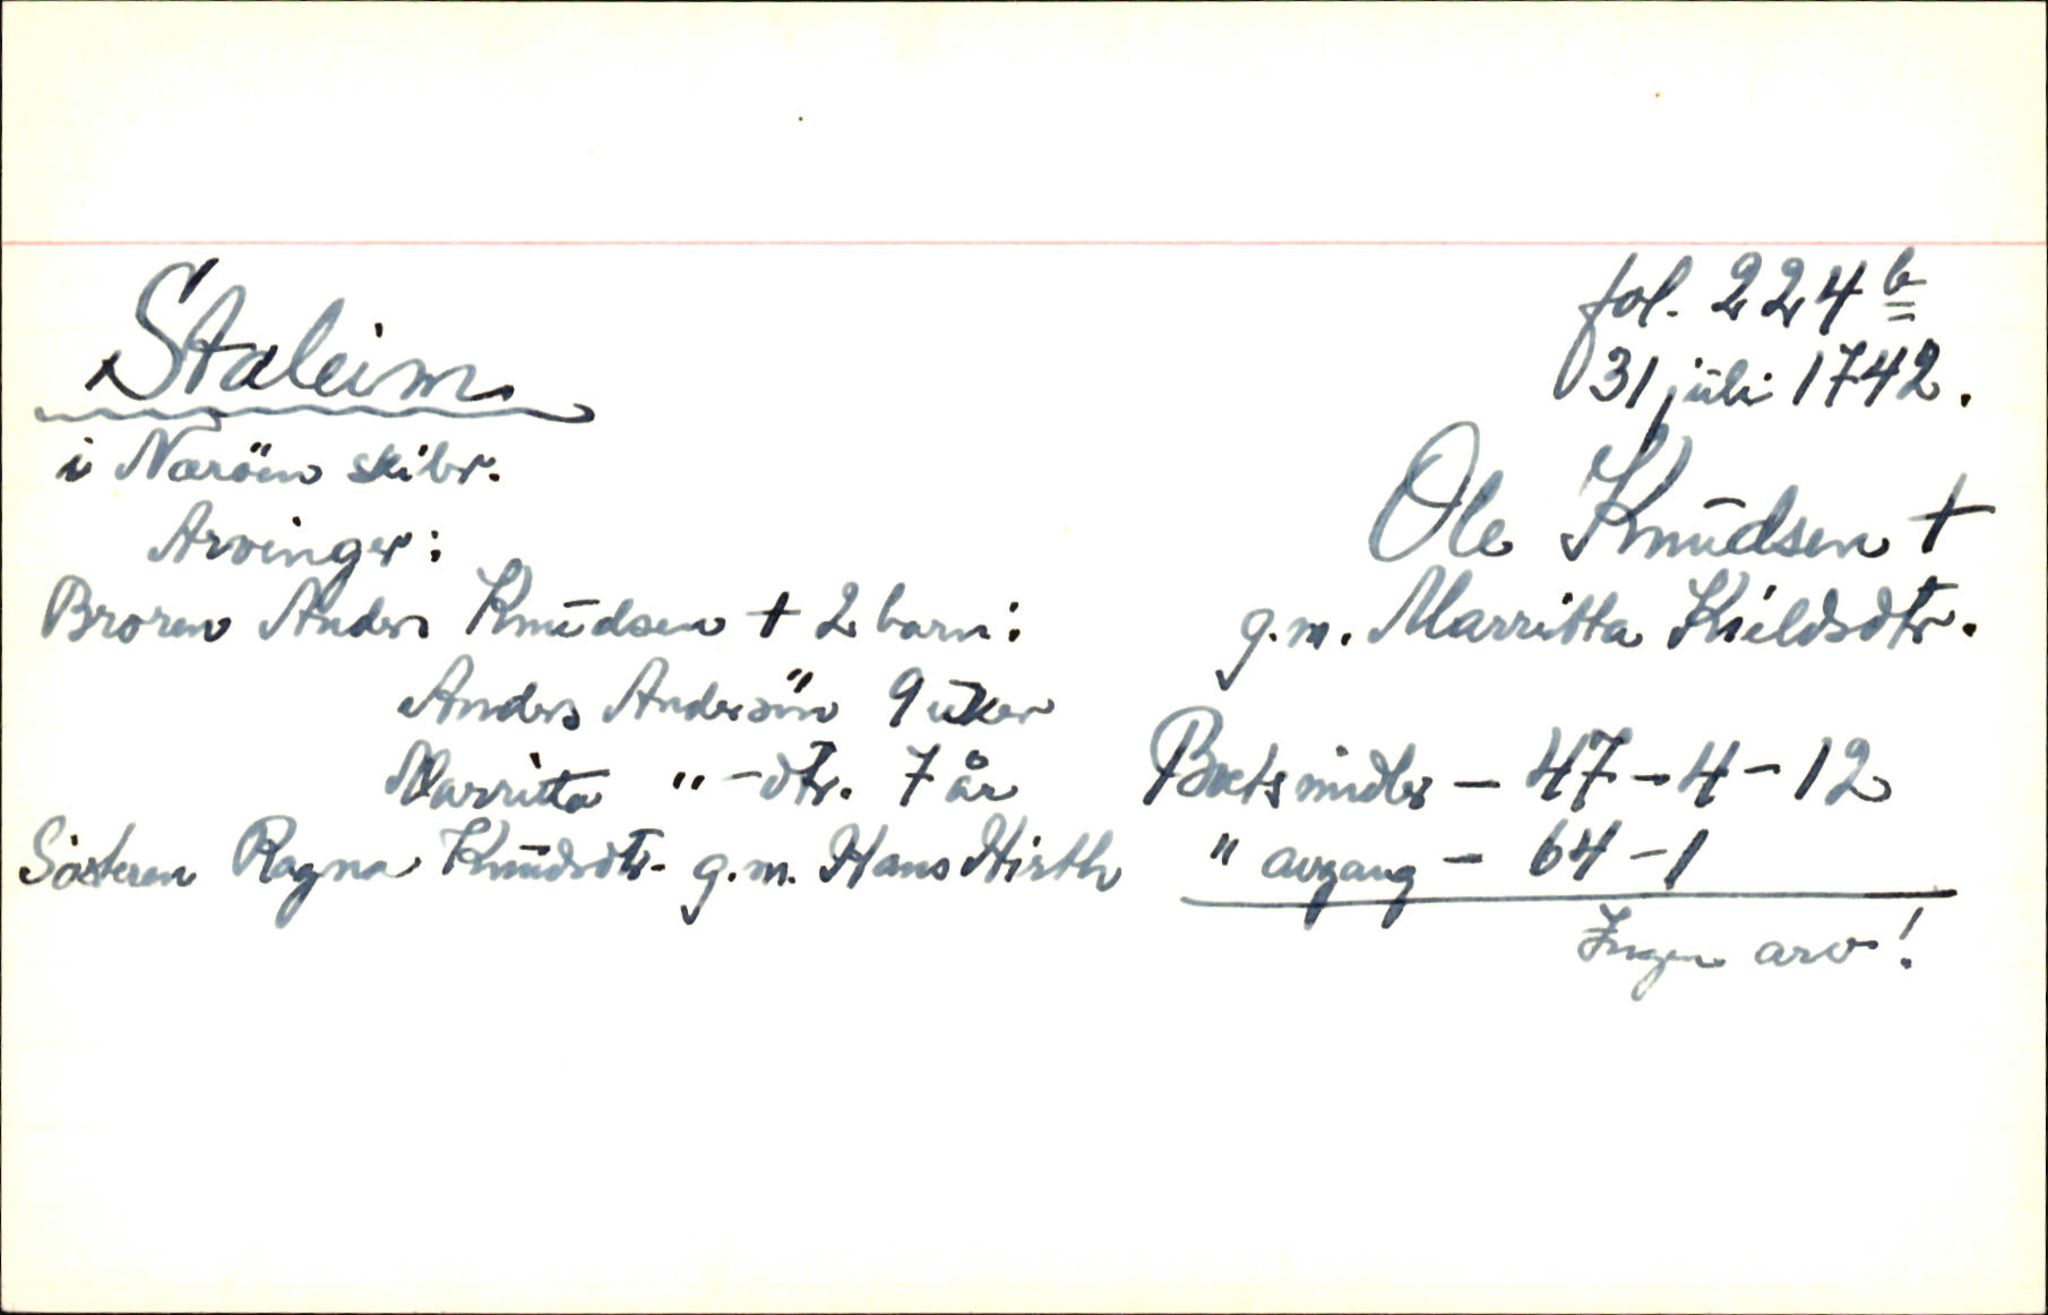 Staleim
i Naröen skibr.
Arvinger:
Broren Anders Knudsen + 2 barn:
Anders Andersön 9 uker
Marritta " -dtr. 7 år
Sösteren Ragna Knudsdtr. g.m. Hans Hirth
fol. 224 b
31 juli 1742.
Ole Knudsen +
g.m. Marritta Kieldsdtr.
Boets midler - 47 - 4 - 12
" avgang - 64 - 1
Ingen arv!